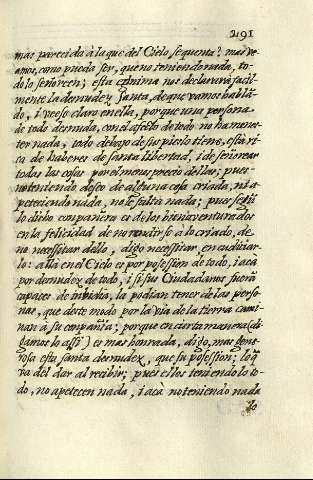 291
mas parecida à la que del Cielo se quenta? mas ve
amos, como pueda ser, que no teniendo nada, to-
do lo señoreen; esta enima nos declararà facil-
mente la desnudez Santa, de que vamos hablã-
do, i veese claro en ella, porque una persona-
de todo desnuda, con el afecto de todo no ha menes-
ter nada, todo debajo de sus pies lo tiene, està ri-
ca de haberes de santa libertad, i de señorear
todas las cosas por el menosprecio dellas; pues-
no teniendo deseo de alguna cosa criada, ni a-
peteciendo nada, no le falta nada; pues segũ
lo dicho compañera es de los bienaventurados
en la felicidad de no rendirse à lo criado, de-
no necessitar dello, digo necessitar, en cudiciar-
lo: allà en el Cielo es por posession de todo, i acà
por desnudez de todo, i si sus Ciudadanos fuerã
capaces de inbidia, la podian tener de las perso-
nas, que deste modo por la via de la tierra cami-
nan à su compañia; porque en cierta manera (di-
gamos lo assi) es mas honrada, digo, mas gene-
rosa esta santa desnudez, que su posession; lo q̃
va del dar al recibir; pues ellos teniendo lo to-
do, no apetecen nada, i acà no teniendo nada
lo